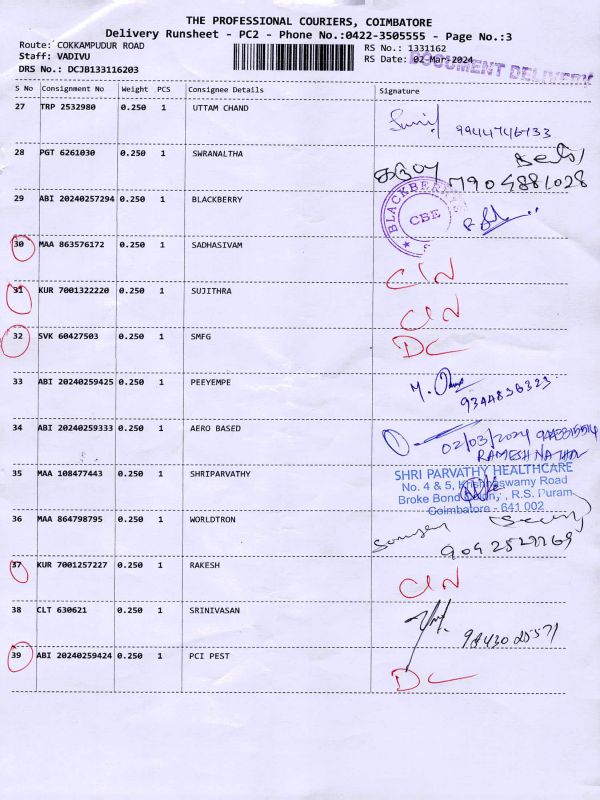 THE PROFESSIONAL COURIERS, COIMBATORE
Delivery Runsheet - PC2 - Phone No.:0422-3505555 - Page No.:3
Route: COKKAMPUDUR ROAD RS No.: 1331162
Staff: VADIVU RS Date: 02-Mar-2024 DOCUMENT DELIVERY
DRS No.: DCJB133116203
S No Consignment No Weight PCS Consignee Details Signature
27 TRP 2532980 0.250 1 UTTAM CHAND
28 PGT 6261030 0.250 1 SWRANALTHA
7904881028
29 ABI 20240257294 0.250 1 BLACKBERRY
BLACKBERRYS CBE
30 MAA 863576172 0.250 1 SADHASIVAM
31 KUR 7001322220 0.250 1 SUJITHRA
32 SVK 60427503 0.250 1 SMFG DC
33 ABI 20240259425 0.250 1 PEEYEMPE
9344836323
34 ABI 20240259333 0.250 1 AERO BASED
02/03/2024
RAMESH NATHAN
35 MAA 108477443 0.250 1 SHRIPARVATHY
SHRI PARVATHY HEALTHCARE
No. 4 & 5, Krishnaswamy Road
Broke Bond R.S. Puram,
Coimbatore - 641 002
36 MAA 864798795 0.250 1 WORLDTRON
37 KUR 7001257227 0.250 1 RAKESH
38 CLT 630621 0.250 1 SRINIVASAN
39 ABI 20240259424 0.250 1 PCI PEST DC